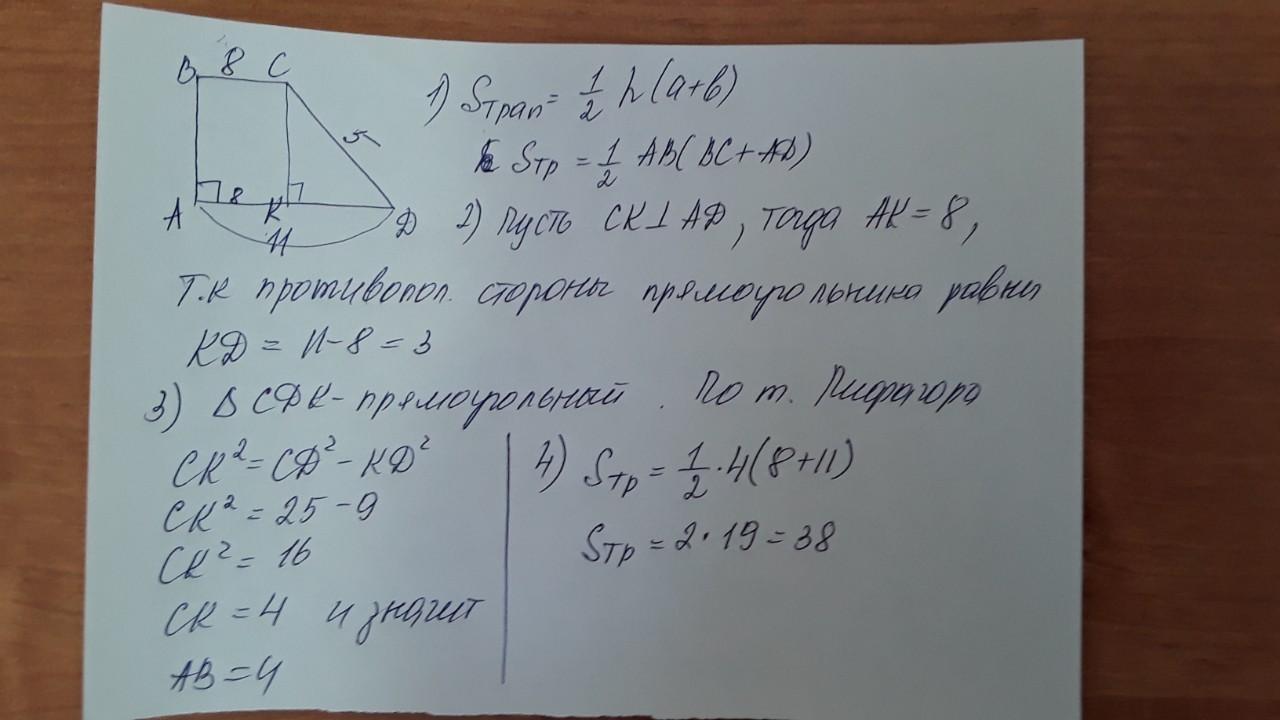 B 8 C
5
A 8 K D
11
1) Sтрап = 1/2 h(a+b)
Sтр = 1/2 AB(BC+AD)
2) Пусть CK⊥AD, тогда AK=8,
т.к противопол. стороны прямоугольника равны
KD = 11-8 = 3
3) Δ CDK - прямоугольный. По т. Пифагора
CK² = CD² - KD²
CK² = 25 - 9
CK² = 16
CK = 4 и значит
AB = 4
4) Sтр = 1/2 · 4(8+11)
Sтр = 2 · 19 = 38